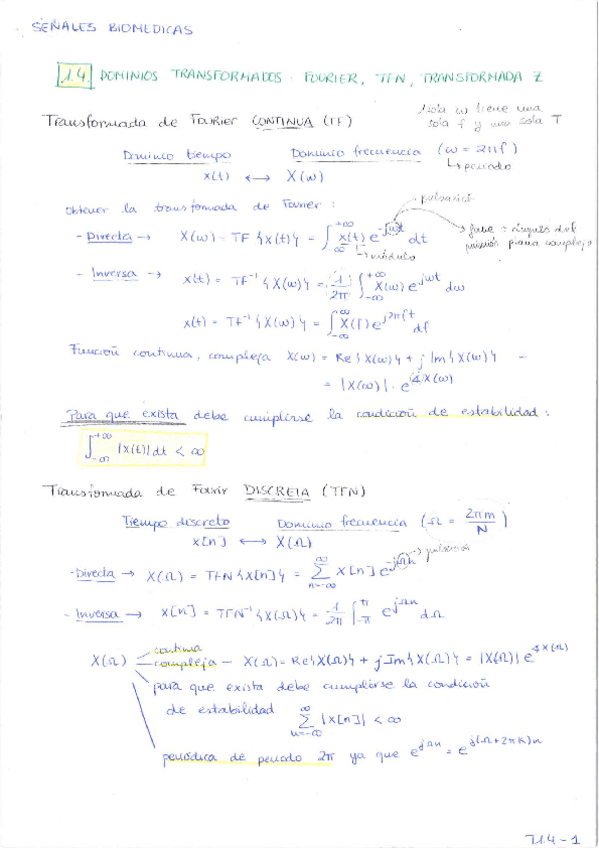 SEÑALES BIOMEDICAS
1.4. DOMINIOS TRANSFORMADOS: FOURIER, TFN, TRANSFORMADA Z
Transformada de Fourier CONTINUA (TF)
1 sola ω tiene una
sola f y una sola T
Dominio tiempo Dominio frecuencia (ω = 2πf)
x(t) ⟷ X(ω)
↳ periodo
Obtener la transformada de Fourier:
pulsación
- Directa → X(ω) = TF {x(t)} = ∫_{-∞}^{+∞} x(t) e^{-jωt} dt
↳ módulo
fase = ángulo del
plano complejo
- Inversa → x(t) = TF⁻¹ {X(ω)} = 1/2π ∫_{-∞}^{+∞} X(ω) e^{jωt} dω
x(t) = TF⁻¹ {X(ω)} = ∫_{-∞}^{+∞} X(f) e^{j2πft} df
Función continua, compleja X(ω) = Re{X(ω)} + j Im{X(ω)}
= |X(ω)| · e^{j∡X(ω)}
Para que exista debe cumplirse la condición de estabilidad:
∫_{-∞}^{+∞} |x(t)| dt < ∞
Transformada de Fourir DISCRETA (TFN)
Tiempo discreto Dominio frecuencia (Ω = 2πm/N)
x[n] ⟷ X(Ω)
- Directa → X(Ω) = TFN {x[n]} = ∑_{n=-∞}^{∞} x[n] e^{-jΩn}
pulsación
- Inversa → x[n] = TFN⁻¹ {X(Ω)} = 1/2π ∫_{-π}^{π} e^{jΩn} dΩ
continua
X(Ω) compleja - X(Ω) = Re{X(Ω)} + j Im{X(Ω)} = |X(Ω)| e^{∡X(Ω)}
para que exista debe cumplirse la condición
de estabilidad ∑_{n=-∞}^{∞} |x[n]| < ∞
periódica de periodo 2π ya que e^{jΩn} = e^{j(Ω+2πk)n}
T1.4-1